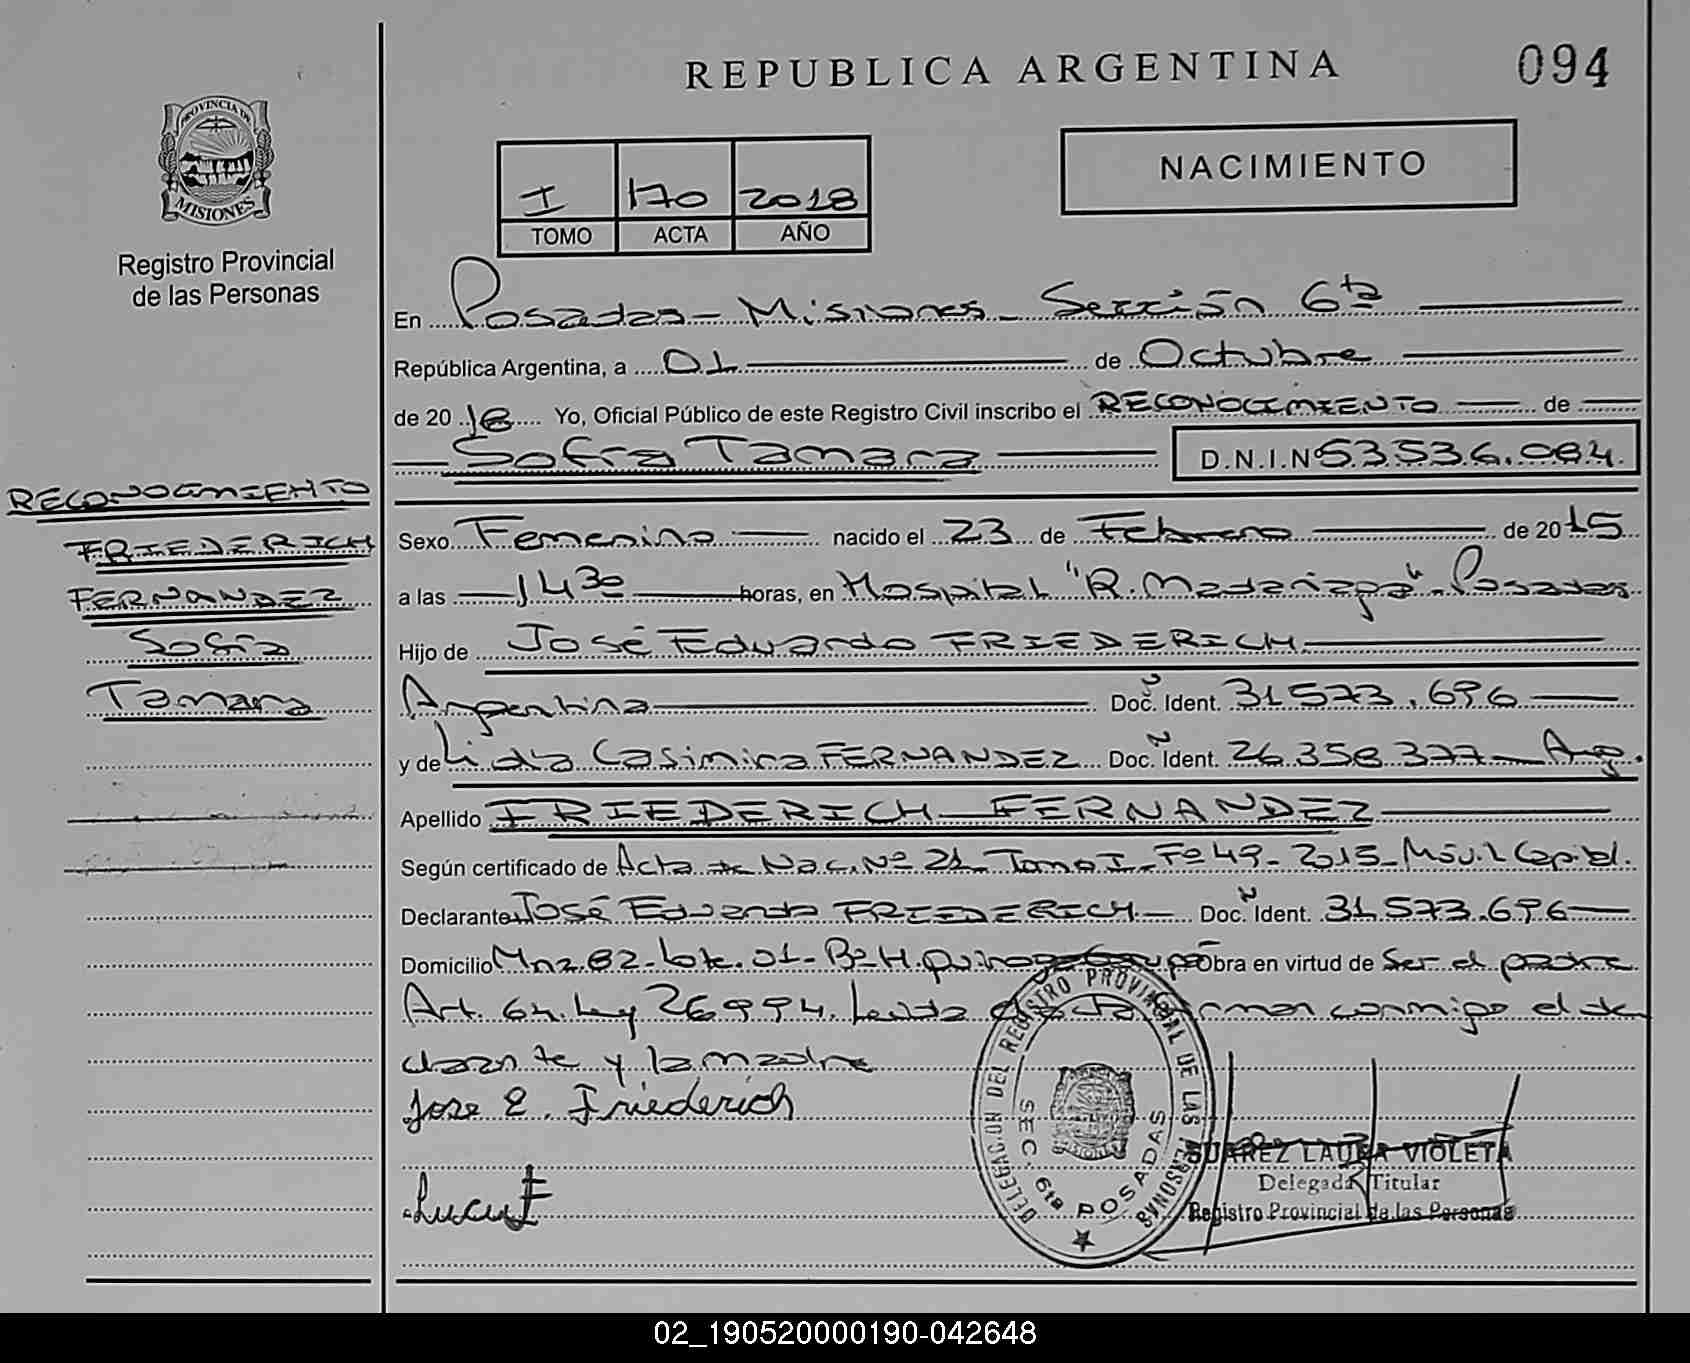 REPUBLICA ARGENTINA
094
PROVINCIA DE
MISIONES
Registro Provincial
de las Personas
I 170 2018
TOMO ACTA AÑO
NACIMIENTO
En Posadas - Misiones - Sección 6ta
República Argentina, a 01 de Octubre
de 2018 Yo, Oficial Público de este Registro Civil inscribo el RECONOCIMIENTO de
Sofía Tamara D.N.I.Nº 53.536.084.
RECONOCIMIENTO
FRIEDERICH
FERNANDEZ
Sofía
Tamara
Sexo Femenino nacido el 23 de Febrero de 2015
a las 14 30 horas, en Hospital "R. Madariaga" - Posadas
Hijo de José Eduardo FRIEDERICH
Argentina Doc. Ident. 31.573.696
y de Lidia Casimira FERNANDEZ Doc. Ident. 26.358.377 - Arg.
Apellido FRIEDERICH FERNANDEZ
Según certificado de Acta de Nac. Nº 21 - Tomo I - Fº 49 - 2015 - Móvil Capital.
Declarante José Eduardo FRIEDERICH Doc. Ident. 31.573.696
Domicilio Mnz. 82 - lote. 01 - Bº H. Quiroga Garupá Obra en virtud de Ser el padre
Art. 64. Ley 26994. Leída el acta firman conmigo el de
clarante y la madre
Jose E. Friederich
DELEGACION DEL REGISTRO PROVINCIAL DE LAS PERSONAS
SEC. 6ta POSADAS
SUAREZ LAURA VIOLETA
Delegada Titular
Registro Provincial de las Personas
02_190520000190-042648